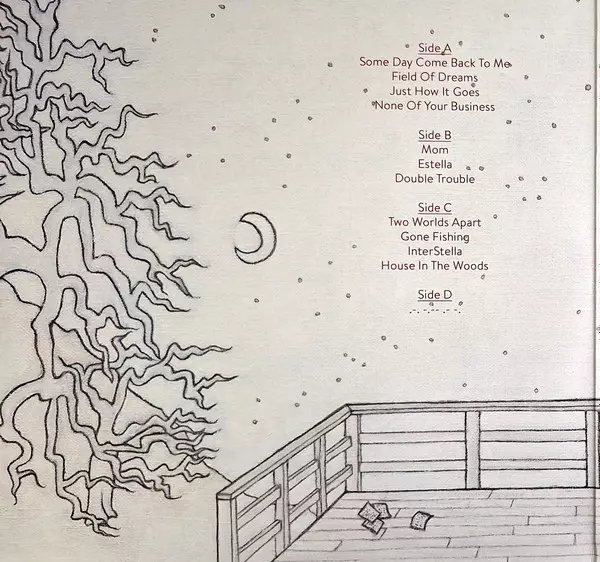 Side A
Some Day Come Back To Me
Field Of Dreams
Just How It Goes
None Of Your Business
Side B
Mom
Estella
Double Trouble
Side C
Two Worlds Apart
Gone Fishing
InterStella
House In The Woods
Side D
.-. -.-- .- -.